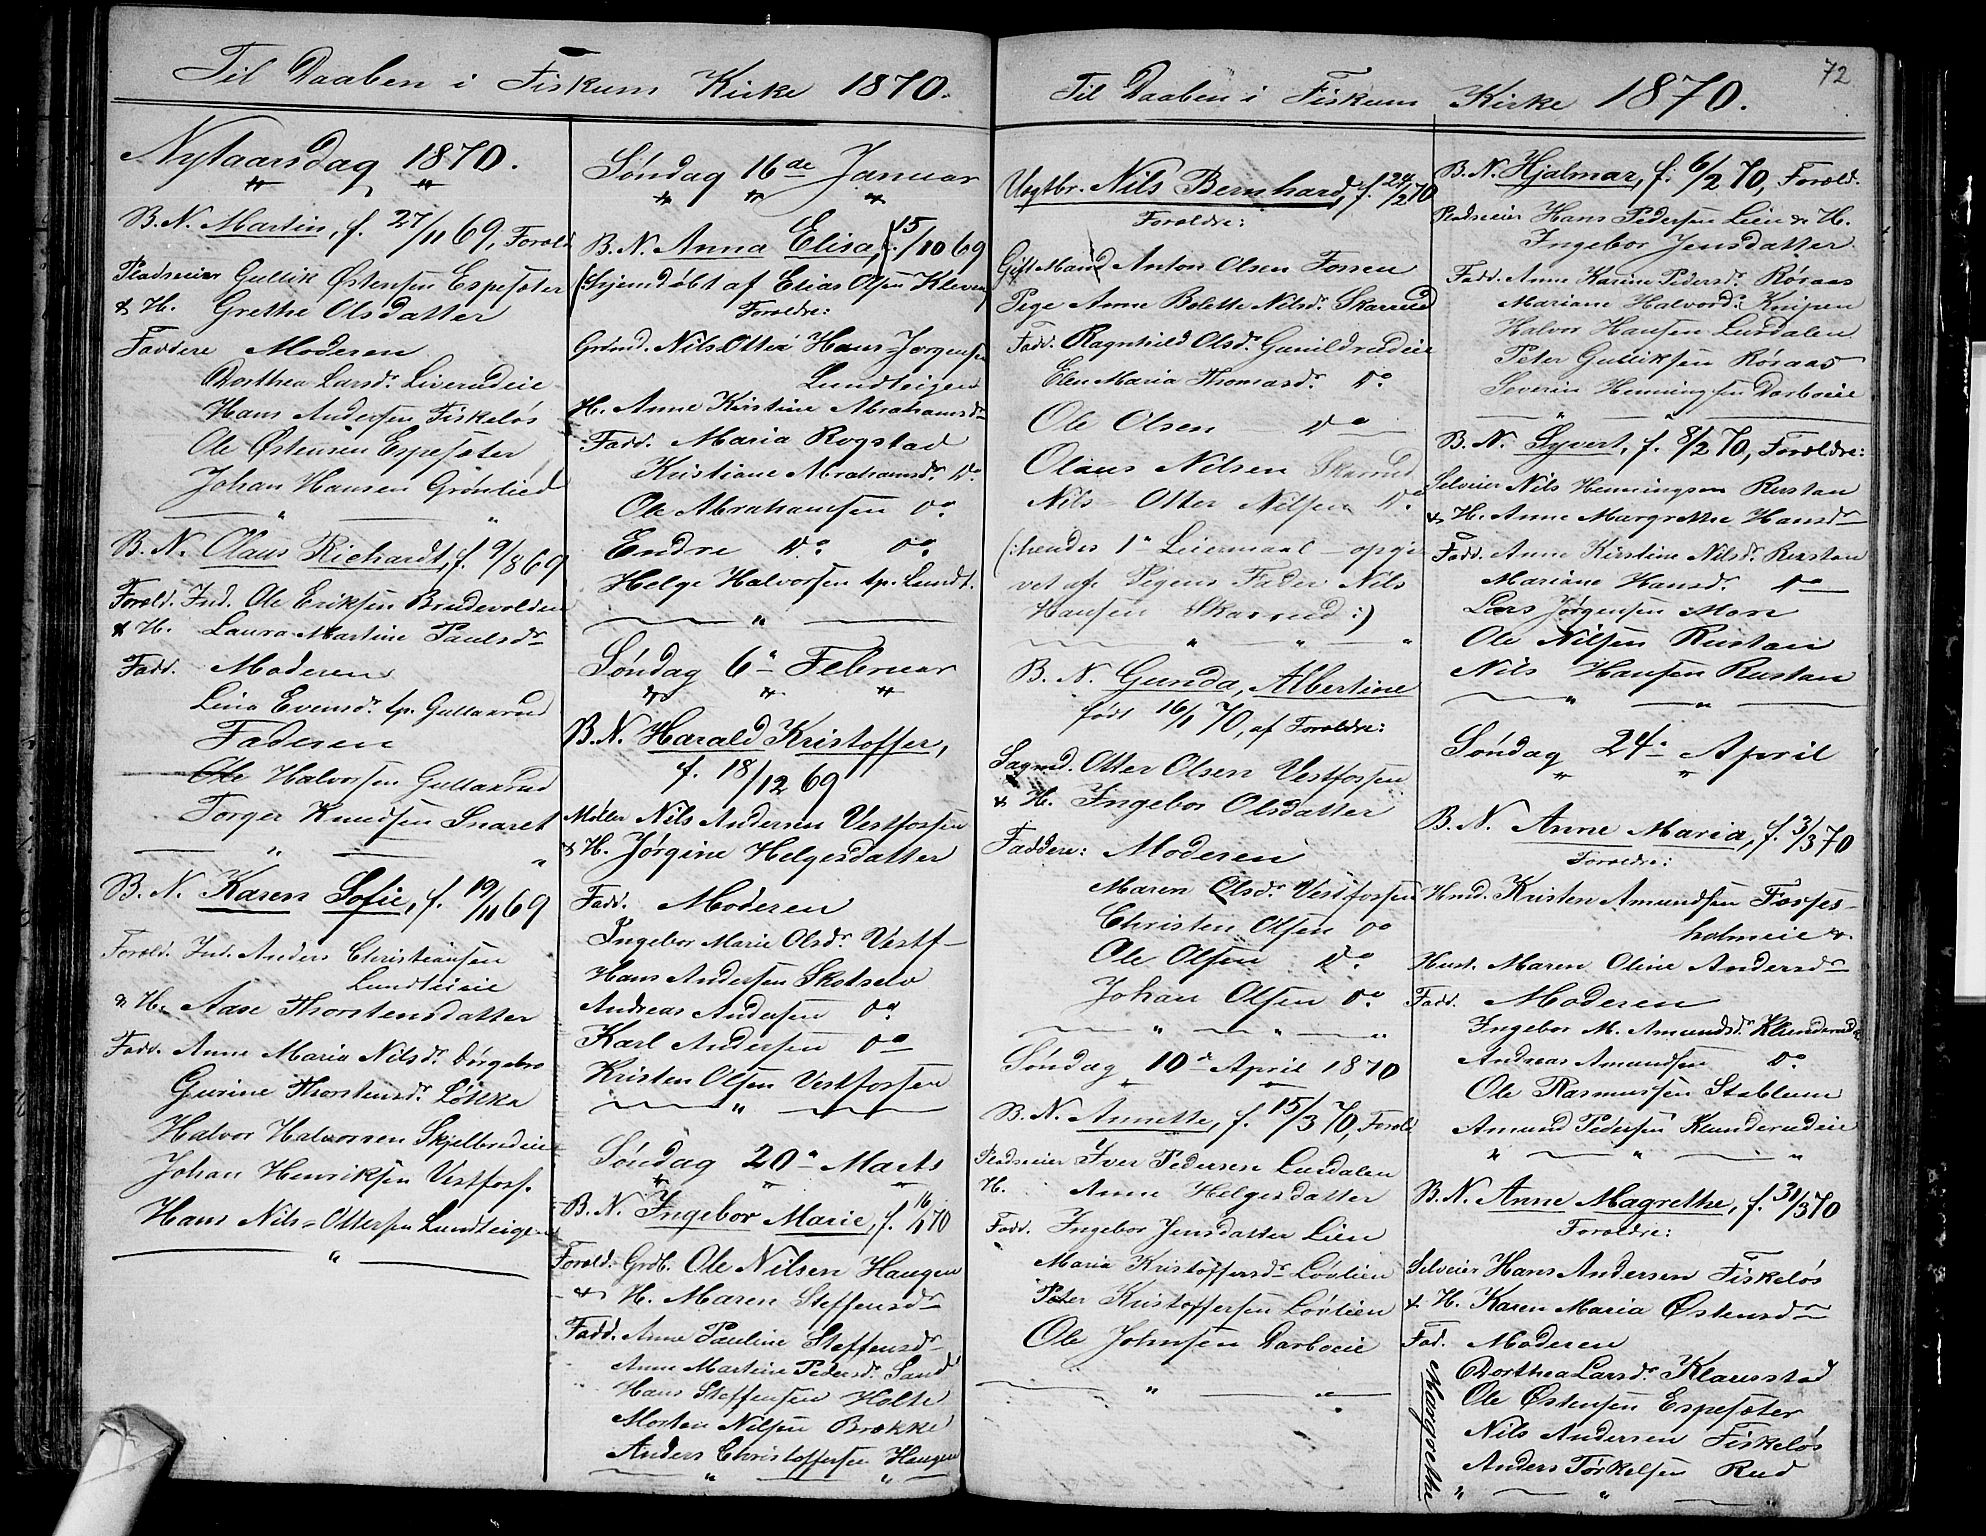 Til Daaben i Fiskum Kirke 1870.
Nytaarsdag 1870.
B. N. Martin, f. 27/11 69, Forold
Pladseier Gullik Østensen Espesæter
& H. Grethe Olsdatter
Faddere Moderen
Dorthea Larsdr. Liverudeie
Hans Andersen Fiskeløs
Ole Østensen Espesæter
Johan Hansen Grønlied
B. N. Olaus Richardt, f. 9/8 69
Forold. Ind. Ole Eriksen Brudevolden
& H. Laura Martine Paulsdr
Fadd. Moderen
Lina Evensdr. tp. Gullaarud
Faderen
Ole Halvorsen Gullaarud
Torger Knudsen Snaret
B. N. Karen Sofie, f. 19/11 69
Forold. Ind. Anders Christiansen
Lundteieie
& H. Aase Thorstensdatter
Fadd. Anne Maria Nilsdr. Dørgebro
Gurine Thorstensdr. Løkka
Halvor Halvorsen Skjelbredeie
Johan Henriksen Vestfoss.
Hans Nils-Ottersen Lundteigen
Søndag 16de Januar
B. N. Anna Elisa, f. 15/10 69
(Hjemdøbt af Elias Olsen Kleven)
Foroldre:
Grdmd. Nils Otter Hans-Jørgensen
Lundteigen
H. Anne Kirstine Abrahamsdr
Fadd. Maria Rogstad
Kristiane Abrahamsdr. Do
Ole Abrahamsen Do
Endre Do Do
Helge Halvorsen tp. Lundt.
Søndag 6te Februar
B. N. Harald Kristoffer,
f. 18/12 69
Møller Nils Andersen Vestfossen
& H. Jørgine Helgesdatter
Fadd. Moderen
Ingebor Marie Olsdr. Vestf
Hans Andersen Skotselv
Andreas Andersen Do
Karl Andersen Do
Kristen Olsen Vestfossen
Søndag 20de Marts
B. N. Ingebor Marie, f. 16/1 70
Forold. Grdb. Ole Nilsen Haugen
& H. Maren Steffensdr
Fadd. Anne Pauline Steffensdr
Anne Martine Pedersdr. Sand
Hans Steffensen Holte
Morten Nilsen Brække
Anders Christoffersen Haugen
72
Til Daaben i Fiskum Kirke 1870.
Uegtbr. Nils Bernhard, f. 24/2 70
Foroldre:
Gift Mand Anton Olsen Fossen
Pige Anne Bolette Nilsdr. Skarrud
Fadd. Ragnhild Olsdr. Gunildrudeie
Elen Maria Thomasdr. Do
Ole Olsen Do
Olaus Nilsen Skarrud
Nils-Otter Nilsen Do
(:hendes 1te Leiermaal - opgi
vet af Pigens Fader Nils
Hansen Skarrud:)
B. N. Gunda, Albertine
født 16/1 70, af Foroldre:
Sagmd. Otter Olsen Vestfossen
& H. Ingebor Olsdatter
Faddere: Moderen
Maren Olsdr. Vestfossen
Christen Olsen Do
Ole Olsen Do.
Johan Olsen Do.
Søndag 10de April 1870
B. N. Annette, f. 15/3 70, Forold
Pladseier Iver Pedersen Lurdalen
H. Anne Helgesdatter
Fadd. Ingebor Jensdatter Lien
Maria Kristoffersdr Løvlien
Peter Kristoffersen Løvlien
Ole Johnsen Darboeie
B. N. Hjalmar, f. 6/2 70, Forold.
Pladseier Hans Pedersen Lien & H.
Ingebor Jensdatter
Fadd. Anne Karine Pedersdr. Røraas
Mariane Halvorsdr. Knipen
Halvor Hansen Lurdalen
Peter Gulliksen Røraas
Severin Henningsen Darboeie
B. N. Syvert, f. 8/2 70, Foroldre:
Selveier Nils Henningsen Rustan
& H. Anne Margrethe Hansdr
Fadd. Anne Kirstine Nilsdr. Rustan
Mariane Hansdr. Do
Lars Jørgensen Moen
Ole Nilsen Rustan
Nils Hansen Rustan
Søndag 24de April
B. N. Anne Maria, f. 3/3 70
Foroldre:
Hmd. Kristen Amundsen Fosses-
holmeie &
Hust. Maren Oline Andersdr
Fadd. Moderen
Ingebor M. Amundsdr. Klunderudeie
Andreas Amundsen Do
Ole Rasmussen Stablum
Amund Pedersen Klunderudeie
B. N. Anne Magrethe, f. 31/3 70
Foroldre:
Selveier Hans Andersen Fiskeløs
& H. Karen Maria Østensdr
Fad. Moderen
Dorthea Larsdr. Klaunstad
Ole Østensen Espesæter
Nils Andersen Fiskeløs
Anders Torkelsen Rud
Margrethe